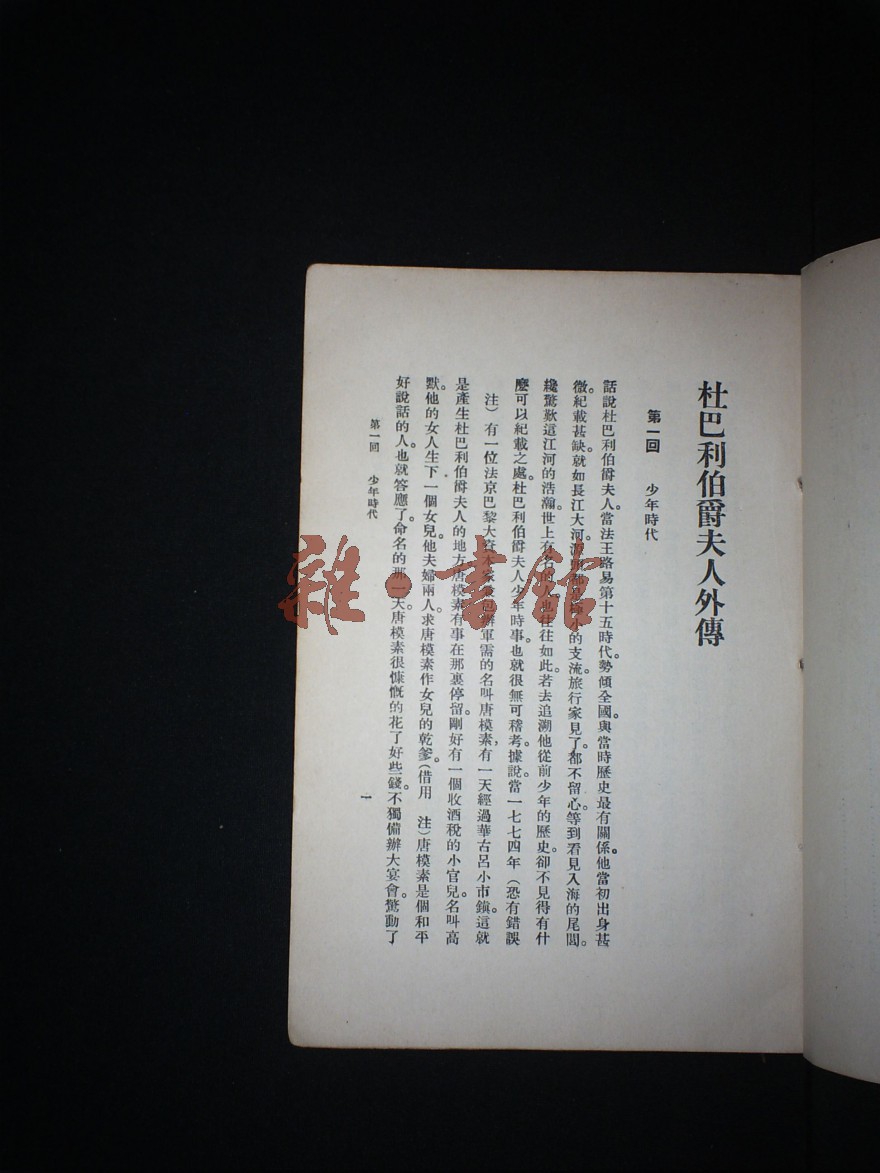 杜巴利伯爵夫人外傳
第一回　少年時代
話說杜巴利伯爵夫人。當法王路易第十五時代。勢傾全國。與當時歷史最有關係。他當初出身甚
微。紀載甚缺。就如長江大河。源頭都是極小的支流。旅行家見了。都不留心。等到看見入海的尾閭。
纔驚歎這江河的浩瀚。世上有名的人。也往往如此。若去追溯他從前少年的歷史。卻不見得有什
麼可以紀載之處。杜巴利伯爵夫人少年時事。也就很無可稽考。據說當一七七四年（恐有錯誤
注）有一位法京巴黎大資本家兼包辦軍需的名叫唐模素，有一天經過華古呂小市鎮。這就
是產生杜巴利伯爵夫人的地方。唐模素有事在那裏停留。剛好有一個收酒稅的小官兒。名叫高
默。他的女人生下一個女兒。他夫婦兩人。求唐模素作女兒的乾爹。（借用　注）唐模素是個和平
好說話的人。也就答應了。命名的那一天。唐模素很慷慨的花了好些錢。不獨備辦大宴會。驚動了
第一回　少年時代
一
雜·書館